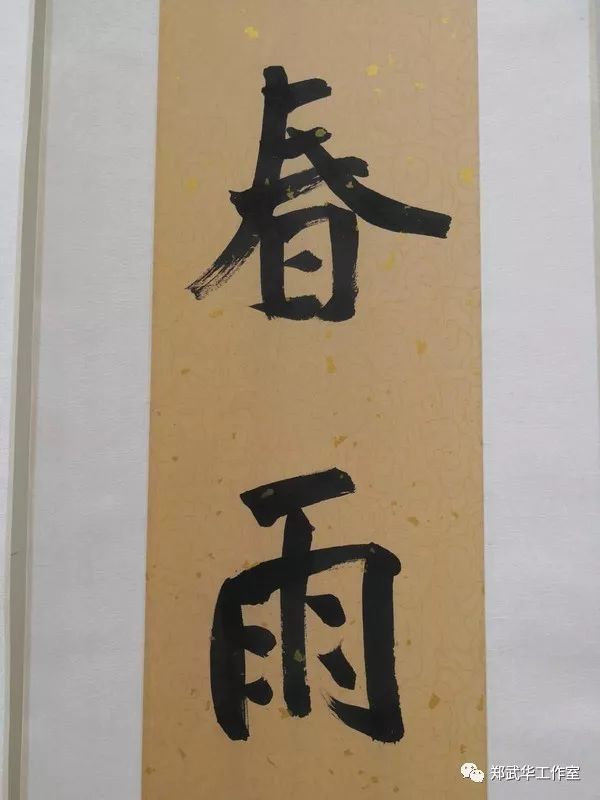 春雨
郑武华工作室